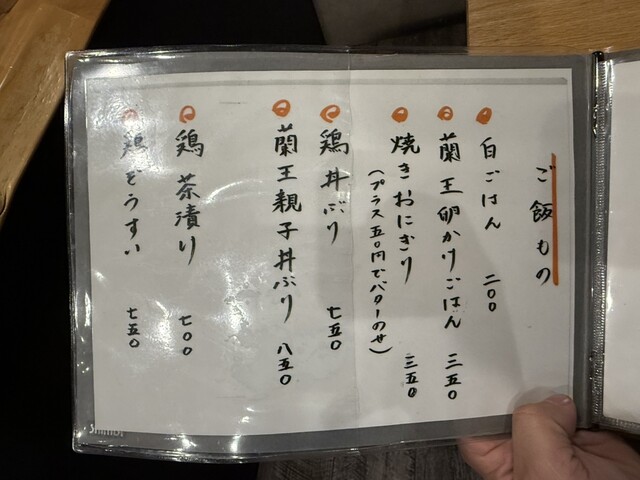 ご飯もの
白ごはん 二〇〇
蘭王卵かけごはん 三五〇
焼きおにぎり 三五〇
(プラス五〇円でバターのせ)
鶏丼ぶり 七五〇
蘭王親子丼ぶり 八五〇
鶏茶漬け 七〇〇
鶏ぞうすい 七五〇